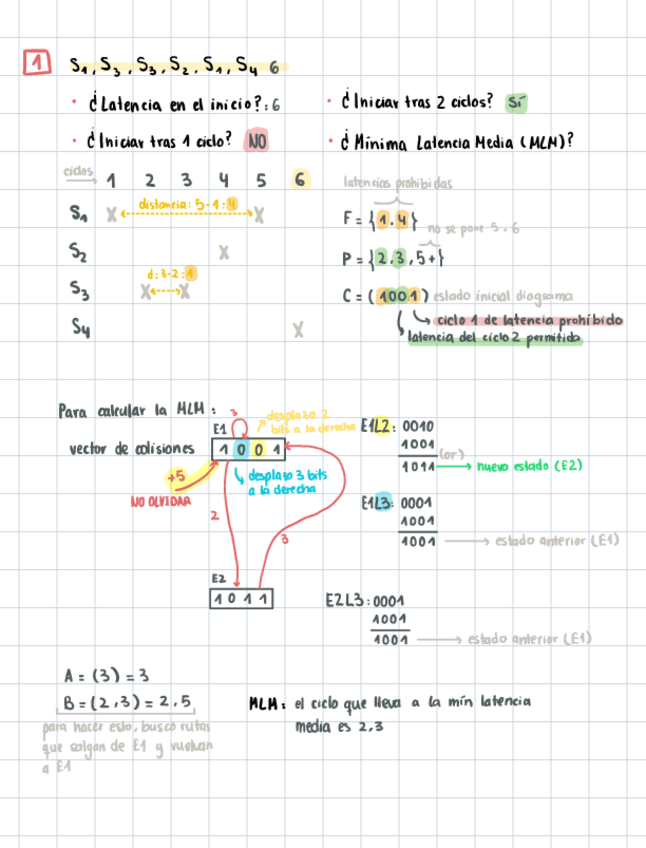 1 S1, S3, S3, S2, S1, S4 6
· ¿Latencia en el inicio?: 6
· ¿Iniciar tras 2 ciclos? Sí
· ¿Iniciar tras 1 ciclo? NO
· ¿Mínima Latencia Media (MLM)?
ciclos 1 2 3 4 5 6
S1 X distancia: 5-1:4 X
S2 X
S3 d:3-2:1
X X
S4 X
latencias prohibidas
F = {1,4}
no se pone 5,6
P = {2,3,5+}
C = (1001) estado inicial diagrama
ciclo 1 de latencia prohibido
latencia del ciclo 2 permitido
Para calcular la MLM:
vector de colisiones
3
E1
desplazo 2
bits a la derecha
1 0 0 1
+5
NO OLVIDAR
desplazo 3 bits
a la derecha
2
3
E2
1 0 1 1
E1L2: 0010
1001
(or)
1011 nuevo estado (E2)
E1L3: 0001
1001
1001 estado anterior (E1)
E2L3: 0001
1001
1001 estado anterior (E1)
A = (3) = 3
B = (2,3) = 2.5
para hacer esto, busco rutas
que salgan de E1 y vuelvan
a E1
MLM: el ciclo que lleva a la mín latencia
media es 2,3